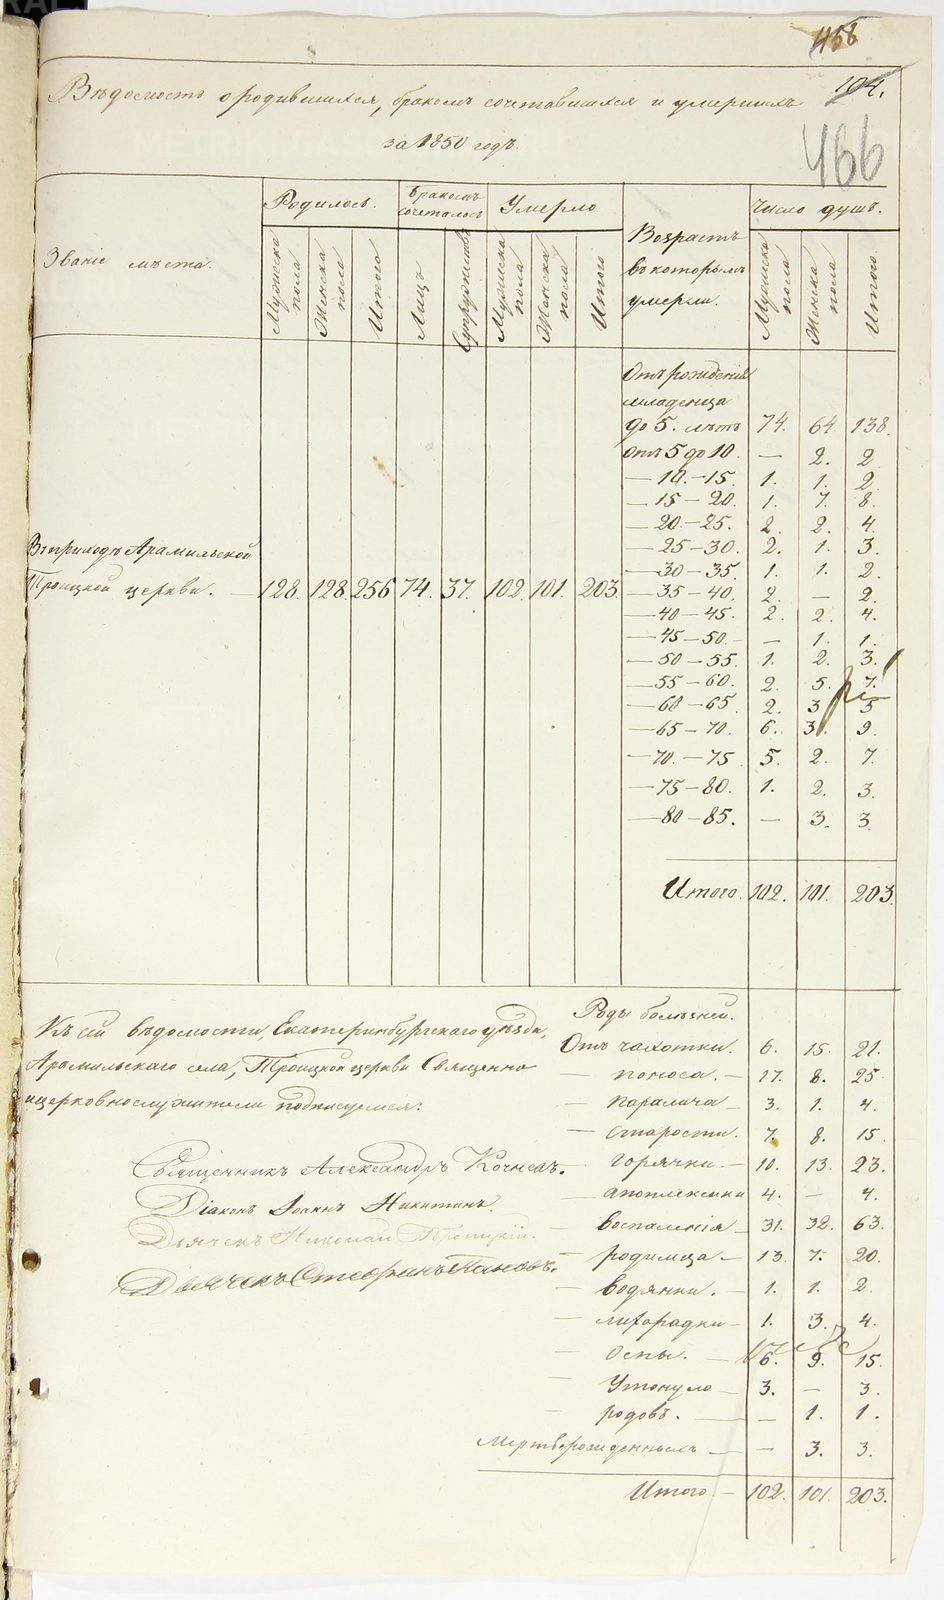 468
Вѣдомость о родившихся, бракомъ сочетавшихся и умершихъ
104.
за 1850 годъ.
466
METRIKI.GASO-URAL.RU
Званіе мѣста.
Родилось.
Бракомъ сочеталось
Умерло
Возрастъ въ которомъ умерли.
Число душъ.
Мужеска пола
Женска пола
Итого
Лицъ
Супружествъ
Мужеска пола
Женска пола
Итого
Мужска пола
Женска пола
Итого
Отъ рожденія
младенца
до 5. лѣтъ 74. 64. 138.
отъ 5 до 10. — 2. 2
— 10.—15. 1. 1. 2.
— 15—20. 1. 7. 8.
— 20—25. 2. 2. 4.
— 25—30. 2. 1. 3.
— 30—35. 1. 1. 2.
Въ приходѣ Арамильской
Троицкой церкви. — 128. 128. 256 74. 37. 102. 101. 203.
— 35—40. 2. — 2.
— 40—45. 2. 2. 4.
— 45—50. — 1. 1.
— 50—55. 1. 2. 3.
— 55—60. 2. 5. 7.
— 60—65. 2. 3 5
— 65—70. 6. 3. 9.
— 70.—75 5. 2. 7.
— 75—80. 1. 2. 3.
— 80—85. — 3. 3.
Итого. 102. 101. 203.
Къ сей вѣдомости, Екатеринбургскаго уѣзда,
Арамильскаго села, Троицкой церкви Священно
и церковнослужители подписуемся:
Священникъ Александръ Кочневъ.
Діаконъ Іоаннъ Никитинъ.
Дьячекъ Николай Троицкій.
Дьячекъ Стефанъ Пановъ.
Роды болѣзней.
Отъ чахотки. 6. 15. 21.
— поноса. — 17. 8. 25
— паралича — 3. 1. 4.
— старости. 7. 8. 15
— горячки. — 10. 13. 23.
— апоплексики 4. — 4.
— воспаленія — 31. 32. 63.
— родимца. — 13 7. 20.
— водянки. — 1. 1. 2.
— лихорадки — 1. 3. 4.
— оспы. — 6. 9. 15.
— Утонуло — 3. — 3.
— родовъ. — — 1. 1.
Мертворожденныхъ — — 3. 3.
Итого — 102. 101. 203.